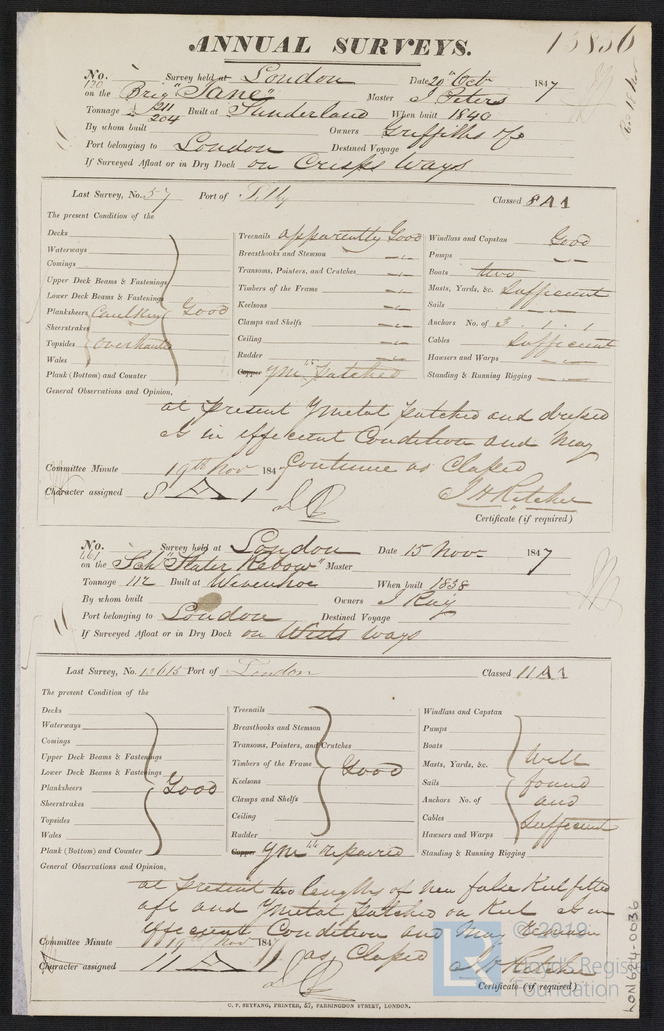 ANNUAL SURVEYS.
13836
No. Survey held at London Date 20th Oct 1847
130
on the Brig "Jane" Master J Peters
Tonnage 211 Built at Sunderland When built 1840
204
By whom built Owners Griffiths &c
Port belonging to London Destined Voyage
If Surveyed Afloat or in Dry Dock on Crisps Ways
Last Survey, No. 57 Port of Classed 8 A 1
The present Condition of the
Decks
Waterways
Comings
Upper Deck Beams & Fastenings
Lower Deck Beams & Fastenings
Planksheers Caulking Good
Sheerstrakes
Topsides overhauled
Wales
Plank (Bottom) and Counter
Treenails apparently Good
Breasthooks and Stemson
Transoms, Pointers, and Crutches
Timbers of the Frame
Keelsons
Clamps and Shelfs
Ceiling
Rudder
Copper YM patched
Windlass and Capstan Good
Pumps
Boats two
Masts, Yards, &c. Sufficient
Sails
Anchors No. of 3 . 1 . 1
Cables Sufficient
Hawsers and Warps
Standing & Running Rigging
General Observations and Opinion,
at present Ymetal patched and dressed
is in efficient Condition and May
Continue as Classed
Committee Minute 19th Nov 1847
Character assigned 8 A 1
Certificate (if required)
No. Survey held at London Date 15 Nov 1847
461
on the Sch "Slater Rebow" Master
Tonnage 112 Built at Wivenhoe When built 1838
By whom built Owners J Kay
Port belonging to London Destined Voyage
If Surveyed Afloat or in Dry Dock on Ways
Last Survey, No. 13615 Port of London Classed 11 A 1
The present Condition of the
Decks
Waterways
Comings
Upper Deck Beams & Fastenings
Lower Deck Beams & Fastenings
Planksheers Good
Sheerstrakes
Topsides
Wales
Plank (Bottom) and Counter
Treenails
Breasthooks and Stemson
Transoms, Pointers, and Crutches
Timbers of the Frame Good
Keelsons
Clamps and Shelfs
Ceiling
Rudder
Copper YM repaired
Windlass and Capstan
Pumps
Boats
Masts, Yards, &c. Well
Sails found
Anchors No. of and
Cables Sufficient
Hawsers and Warps
Standing & Running Rigging
General Observations and Opinion,
at present two lengths of new false Keel fitted
aft and Ymetal patched on Keel is in
efficient Condition and May Remain
as Classed
Committee Minute 19th Nov 1847
Character assigned 11 A 1
Certificate (if required)
C. F. SEYFANG, PRINTER, 57, FARRINGDON STREET, LONDON.
LON 624-0036
© 2019
LR
Lloyd's Register
Foundation